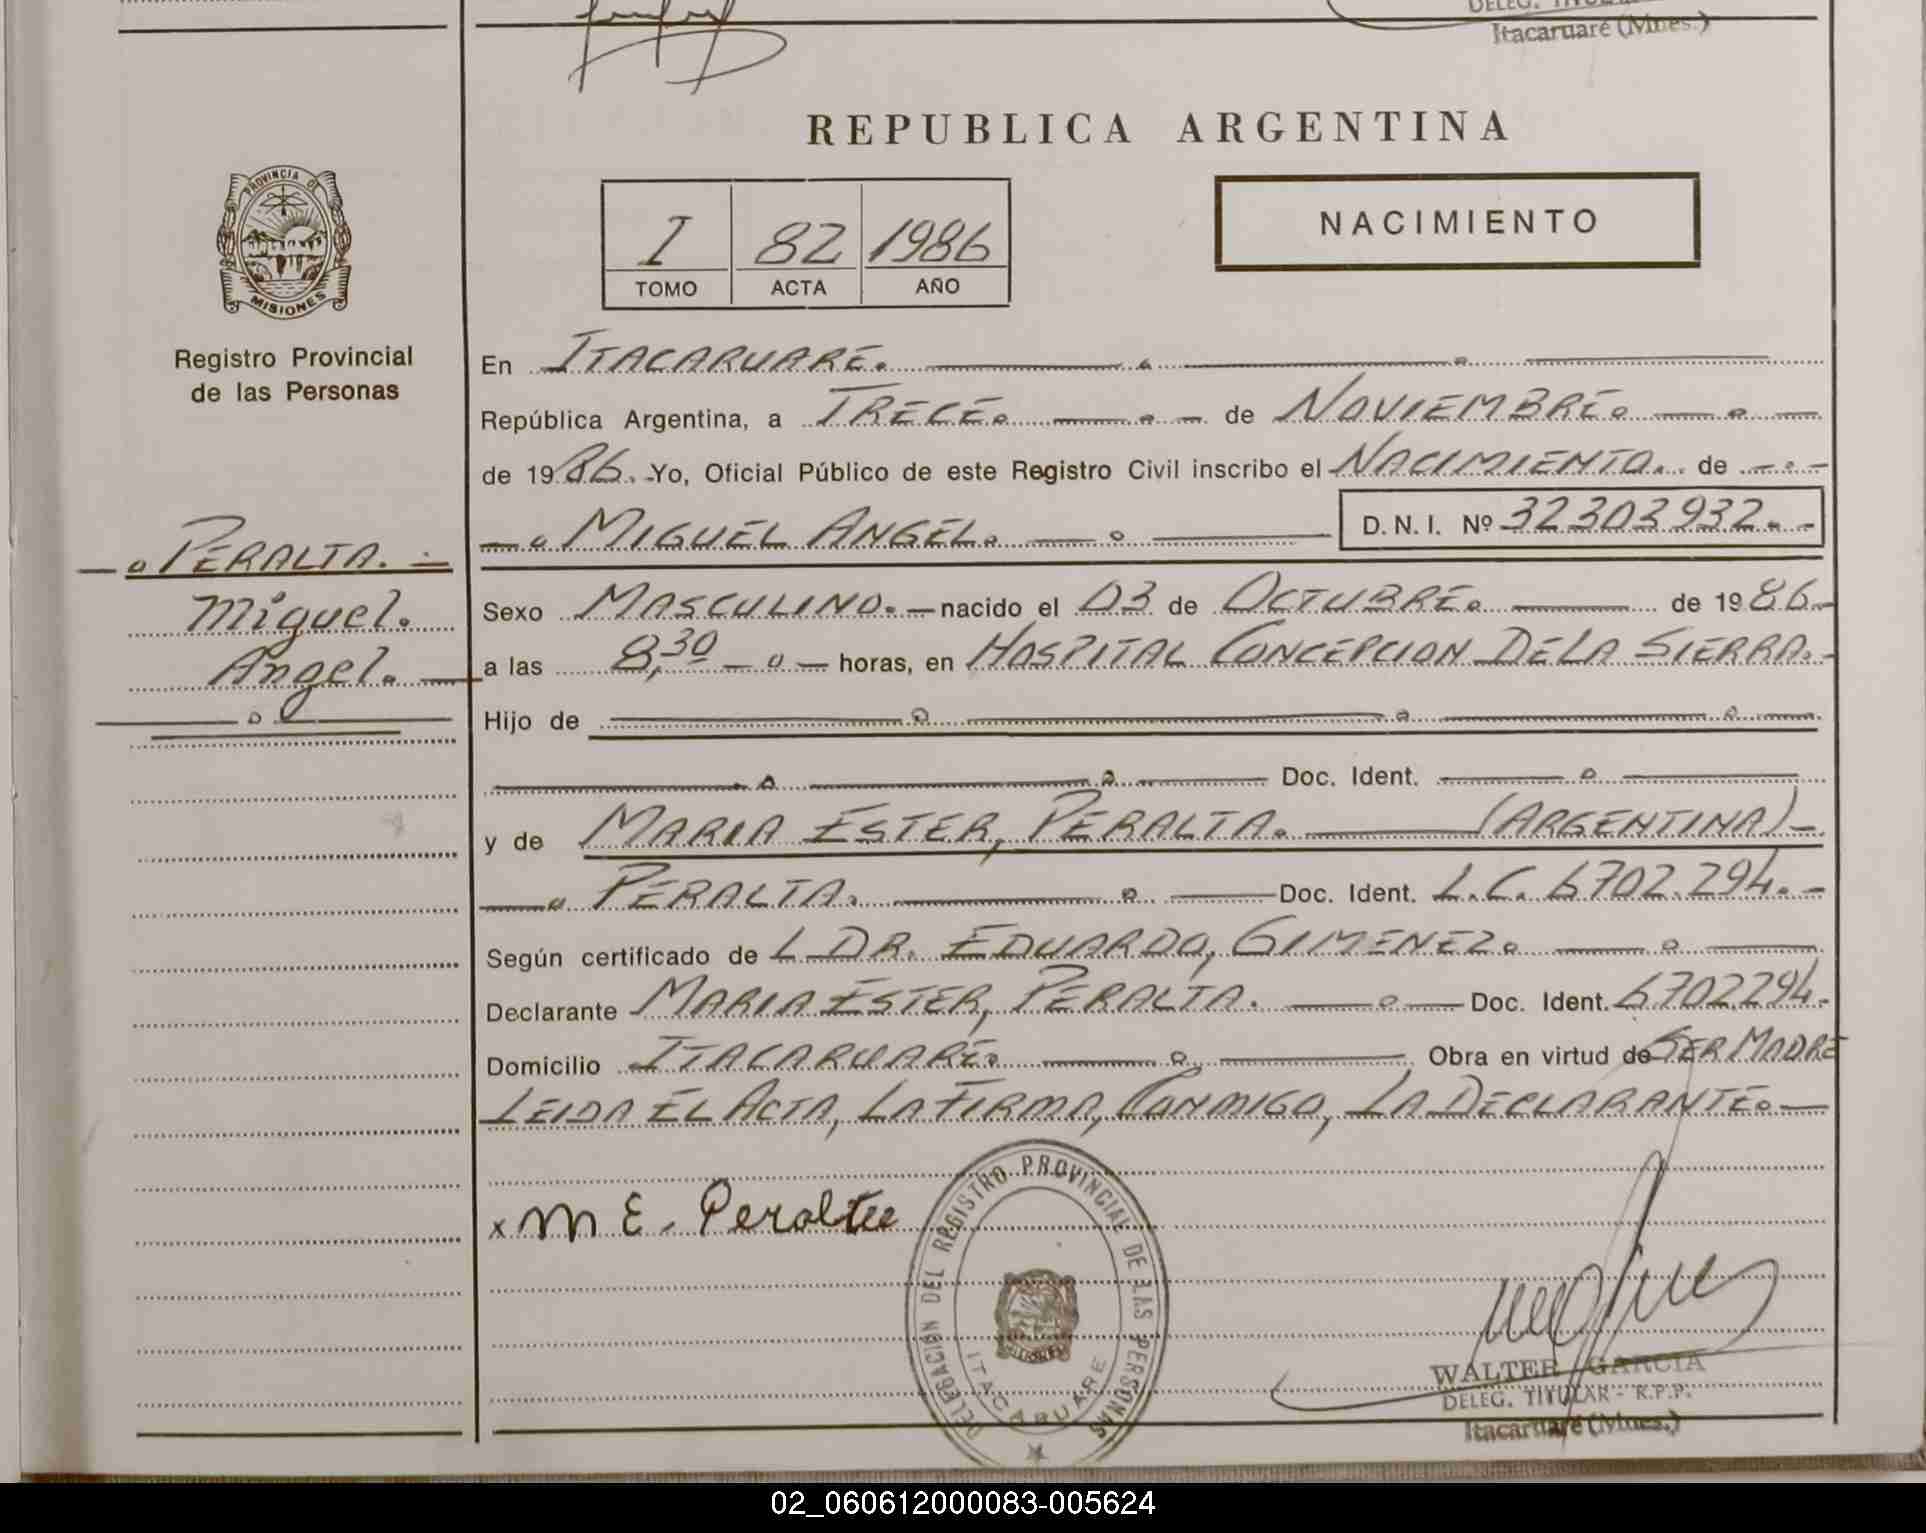 DELEG. TITULAR
Itacaruaré (Mnes.)
REPUBLICA ARGENTINA
PROVINCIA DE
MISIONES
I 82 1986
TOMO ACTA AÑO
NACIMIENTO
Registro Provincial
de las Personas
En ITACARUARE.
República Argentina, a TRECE. de NOVIEMBRE.
de 1986. Yo, Oficial Público de este Registro Civil inscribo el NACIMIENTO. de
MIGUEL ANGEL. D.N.I. Nº 32303932.
PERALTA.
Miguel.
Angel.
Sexo MASCULINO. nacido el 03 de OCTUBRE. de 1986
a las 8,30 horas, en HOSPITAL CONCEPCION DE LA SIERRA.
Hijo de
Doc. Ident.
y de MARIA ESTER, PERALTA. (ARGENTINA)
PERALTA. Doc. Ident. L.C. 6702.294.
Según certificado de L DR. EDUARDO, GIMENEZ.
Declarante MARIA ESTER, PERALTA. Doc. Ident. 6702294.
Domicilio ITACARUARE. Obra en virtud de SER MADRE
LEIDA EL ACTA, LA FIRMA, CONMIGO, LA DECLARANTE.
x M E. Peralta
DELEGACIÓN DEL REGISTRO PROVINCIAL DE LAS PERSONAS
MISIONES
ITACARUARE
WALTER GARCIA
DELEG. TITULAR - R.P.P.
Itacaruaré (Mnes.)
02_060612000083-005624